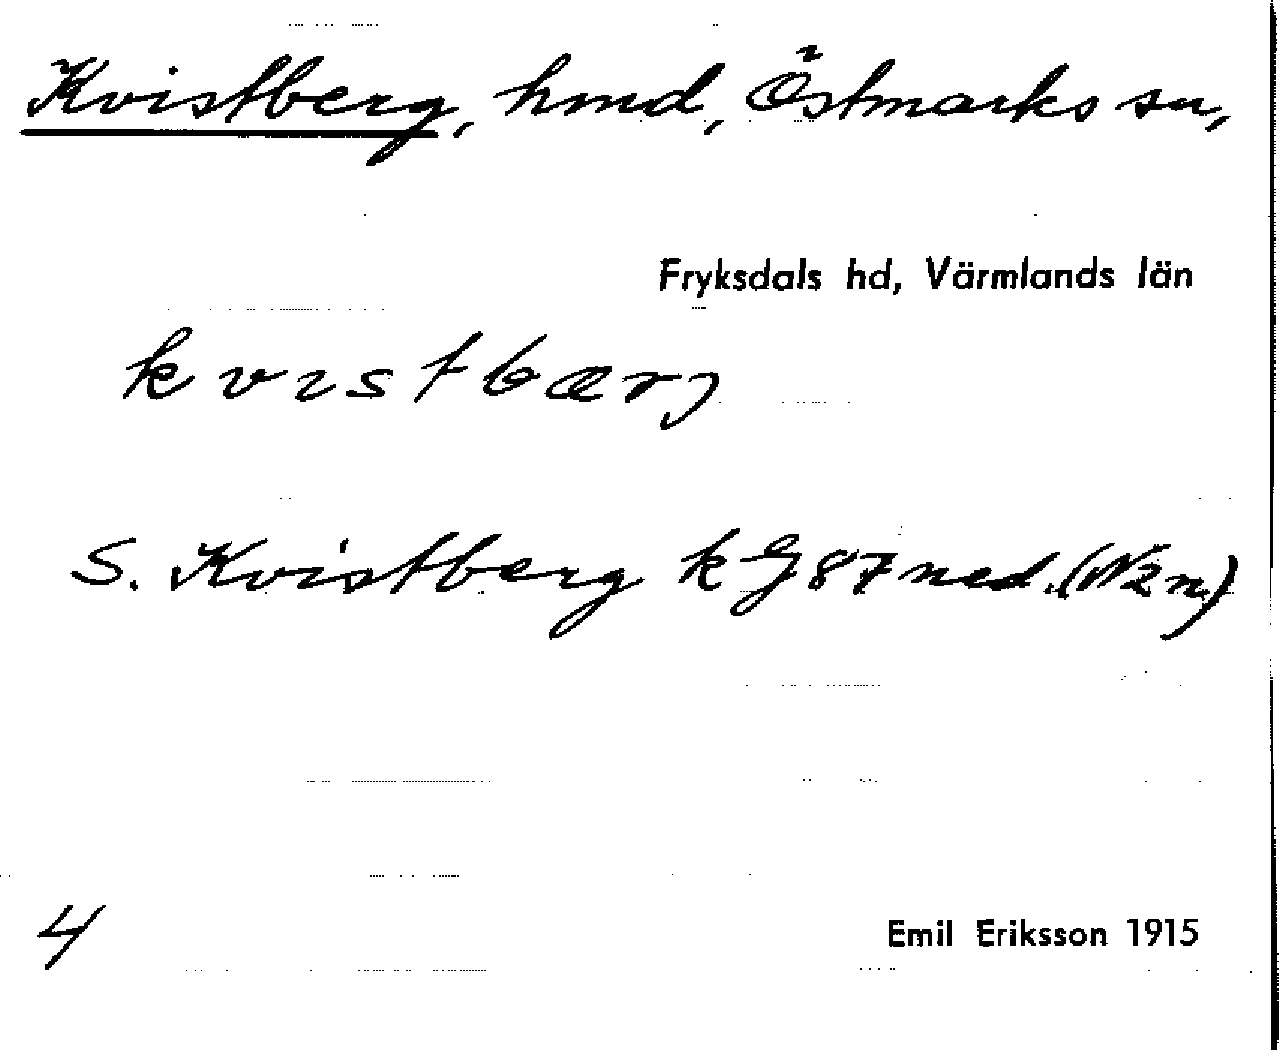 Kvistberg, hmd, Östmarks sn,
Fryksdals hd, Värmlands län
kvistbærj
S. Kvistberg k G 87 ned. (N2n)
4
Emil Eriksson 1915